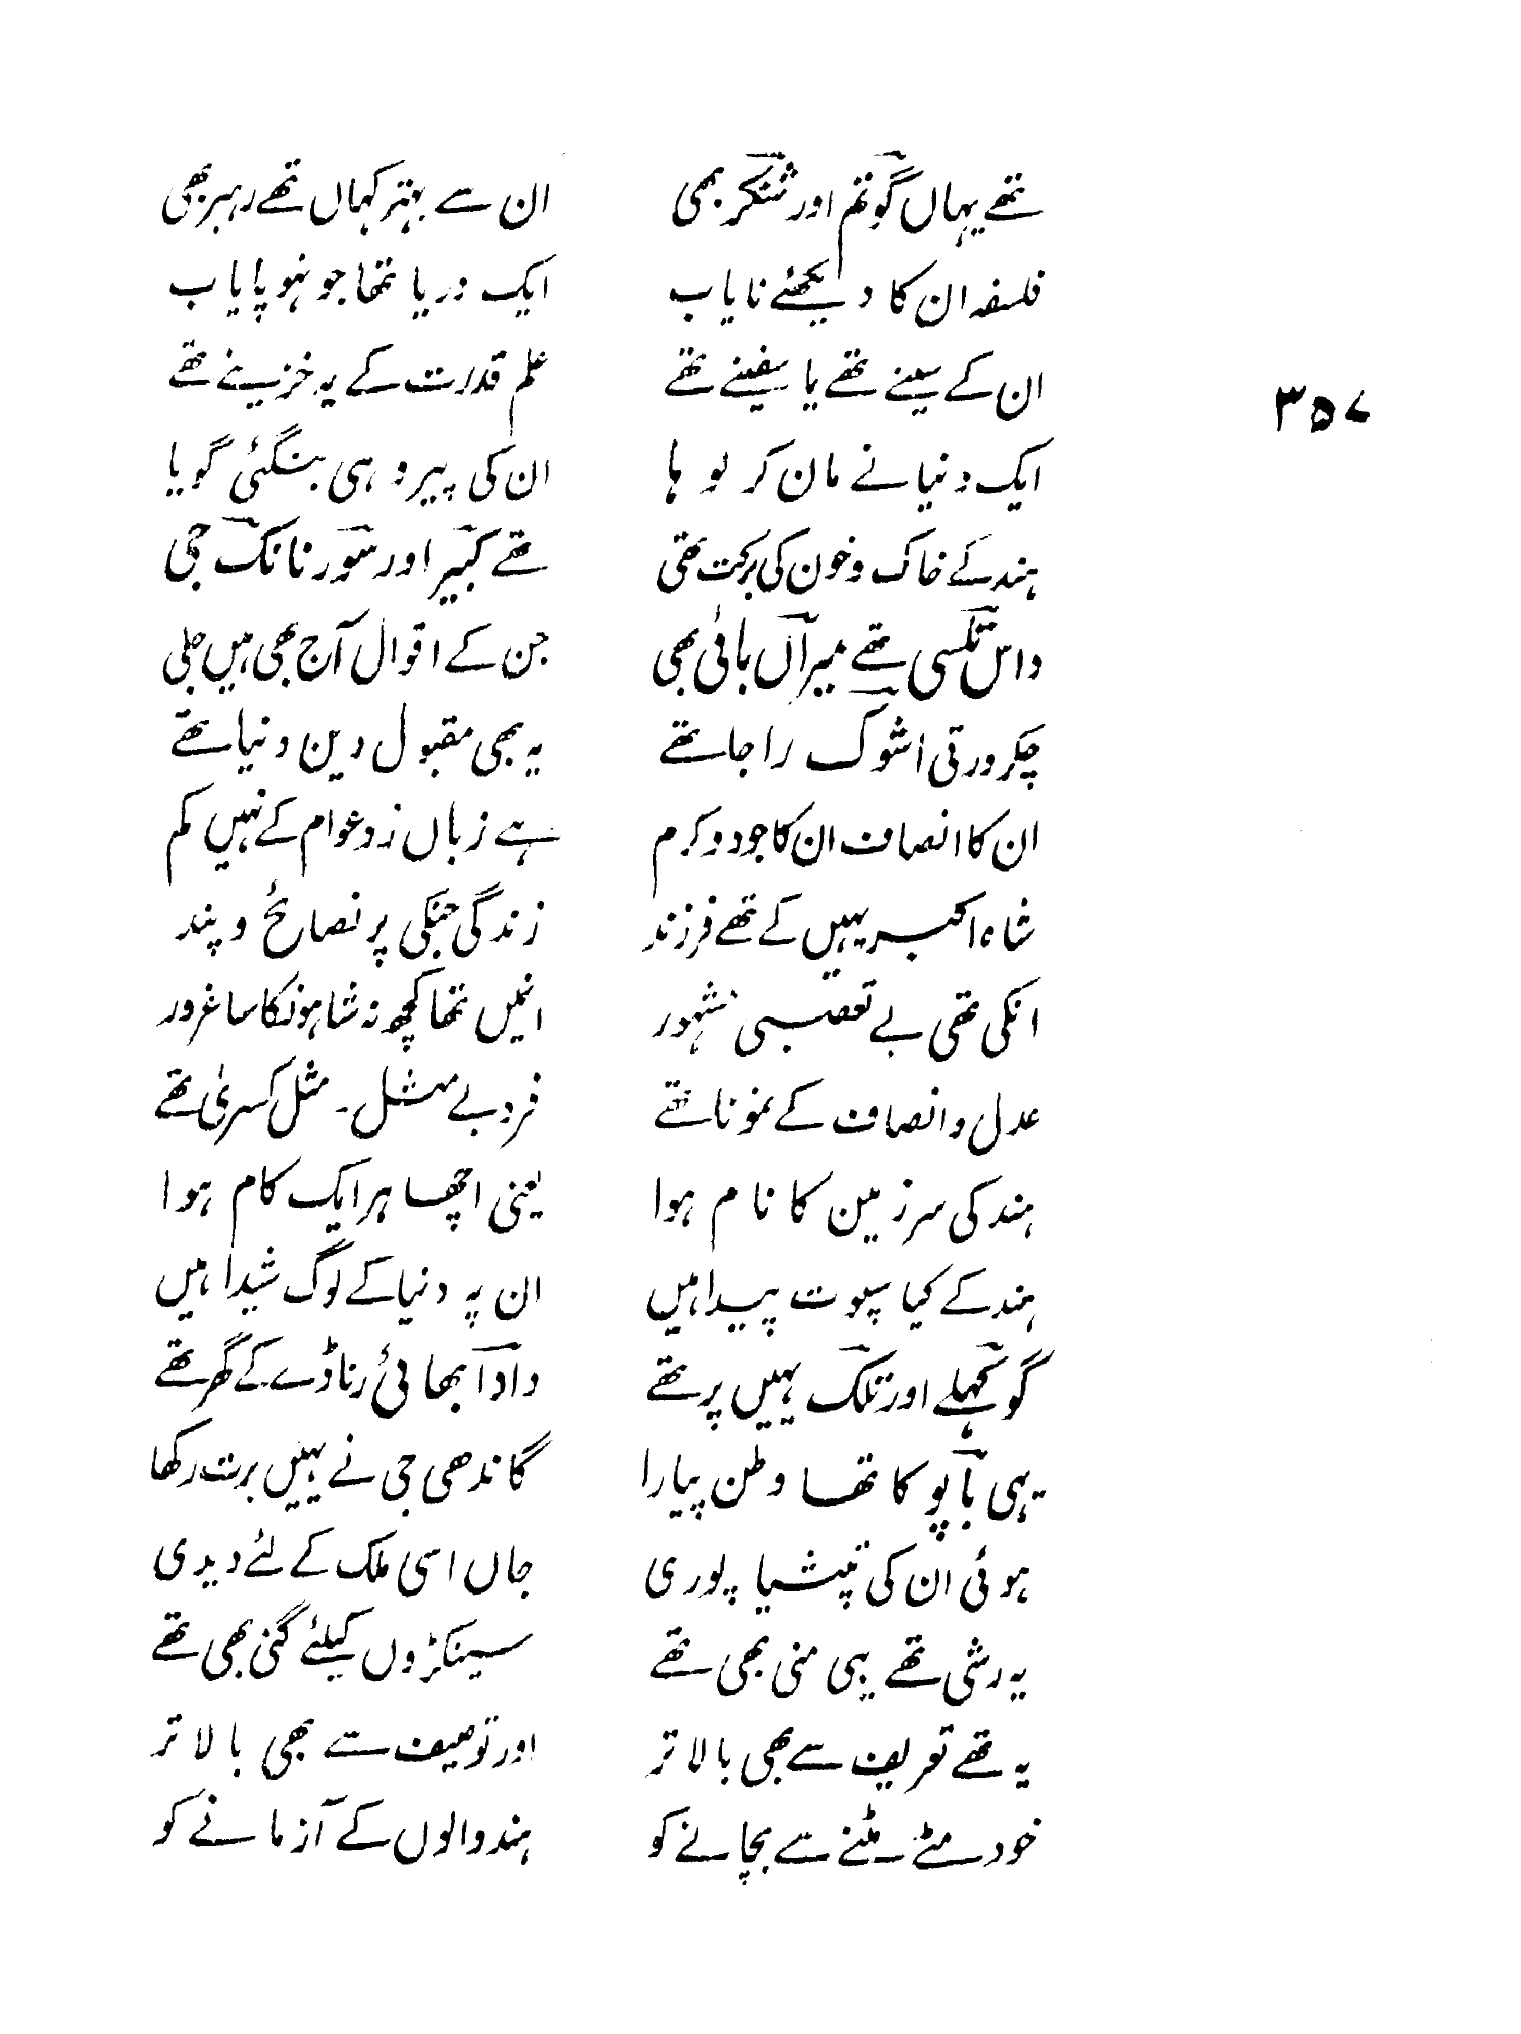 تھے یہاں گوتم اور شنکر بھی ان سے بہتر کہاں تھے رہبر بھی
فلسفہ ان کا دیکھئے نایاب ایک دریا تھا جو نہو پایاب
ان کے سینے تھے یا سفینے تھے علم قدرت کے یہ خزینے تھے
۳۵۷
ایک دنیا نے مان کر لوہا ان کی پیرو ہی بنگئی گویا
ہند کے خاک و خون کی برکت تھی تھے کبیر اور سور نانک جی
داس تلسی تھے میراں بائی بھی جن کے اقوال آج بھی ہیں جلی
چکرورتی اشوک راجا تھے یہ بھی مقبول دین دنیا تھے
ان کا انصاف ان کا جود و کرم ہے زباں زد عوام کے نہیں کم
شاہ اکبر یہیں کے تھے فرزند زندگی جنکی پر نصائح و پند
انکی تھی بے تعصبی مشہور انمیں تھا کچھ نہ شاہونکا سا غرور
عدل و انصاف کے نمونا تھے فرد بے مثل۔ مثل کسریٰ تھے
ہند کی سرزمین کا نام ہوا یعنی اچھا ہر ایک کام ہوا
ہند کے کیا سپوت پیدا ہیں ان پہ دنیا کے لوگ شیدا ہیں
گوکھلے اور تلک یہیں پر تھے دادا بھائی رناڈے کے گھر تھے
یہی باپو کا تھا وطن پیارا گاندھی جی نے یہیں برت رکھا
ہوئی ان کی تپشیا پوری جاں اسی ملک کے لئے دیدی
یہ رشی تھے یہی منی بھی تھے سینکڑوں کیلئے گنی بھی تھے
یہ تھے تعریف سے بھی بالا تر اور توصیف سے بھی بالا تر
خود مٹے مٹنے سے بچانے کو ہند والوں کے آزمانے کو